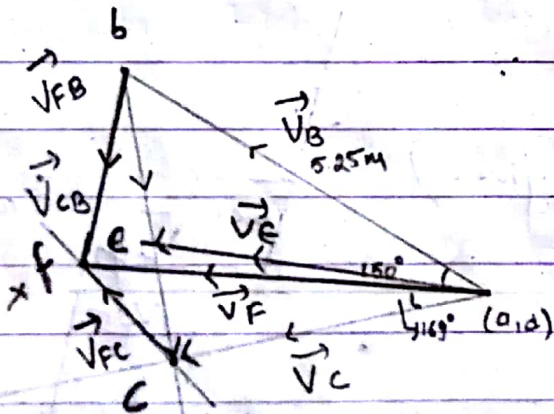 b
V_FB
V_B
5.25m
V_CB
e
V_E
150°
f
x
V_F
169°
(a,d)
V_FC
V_C
c